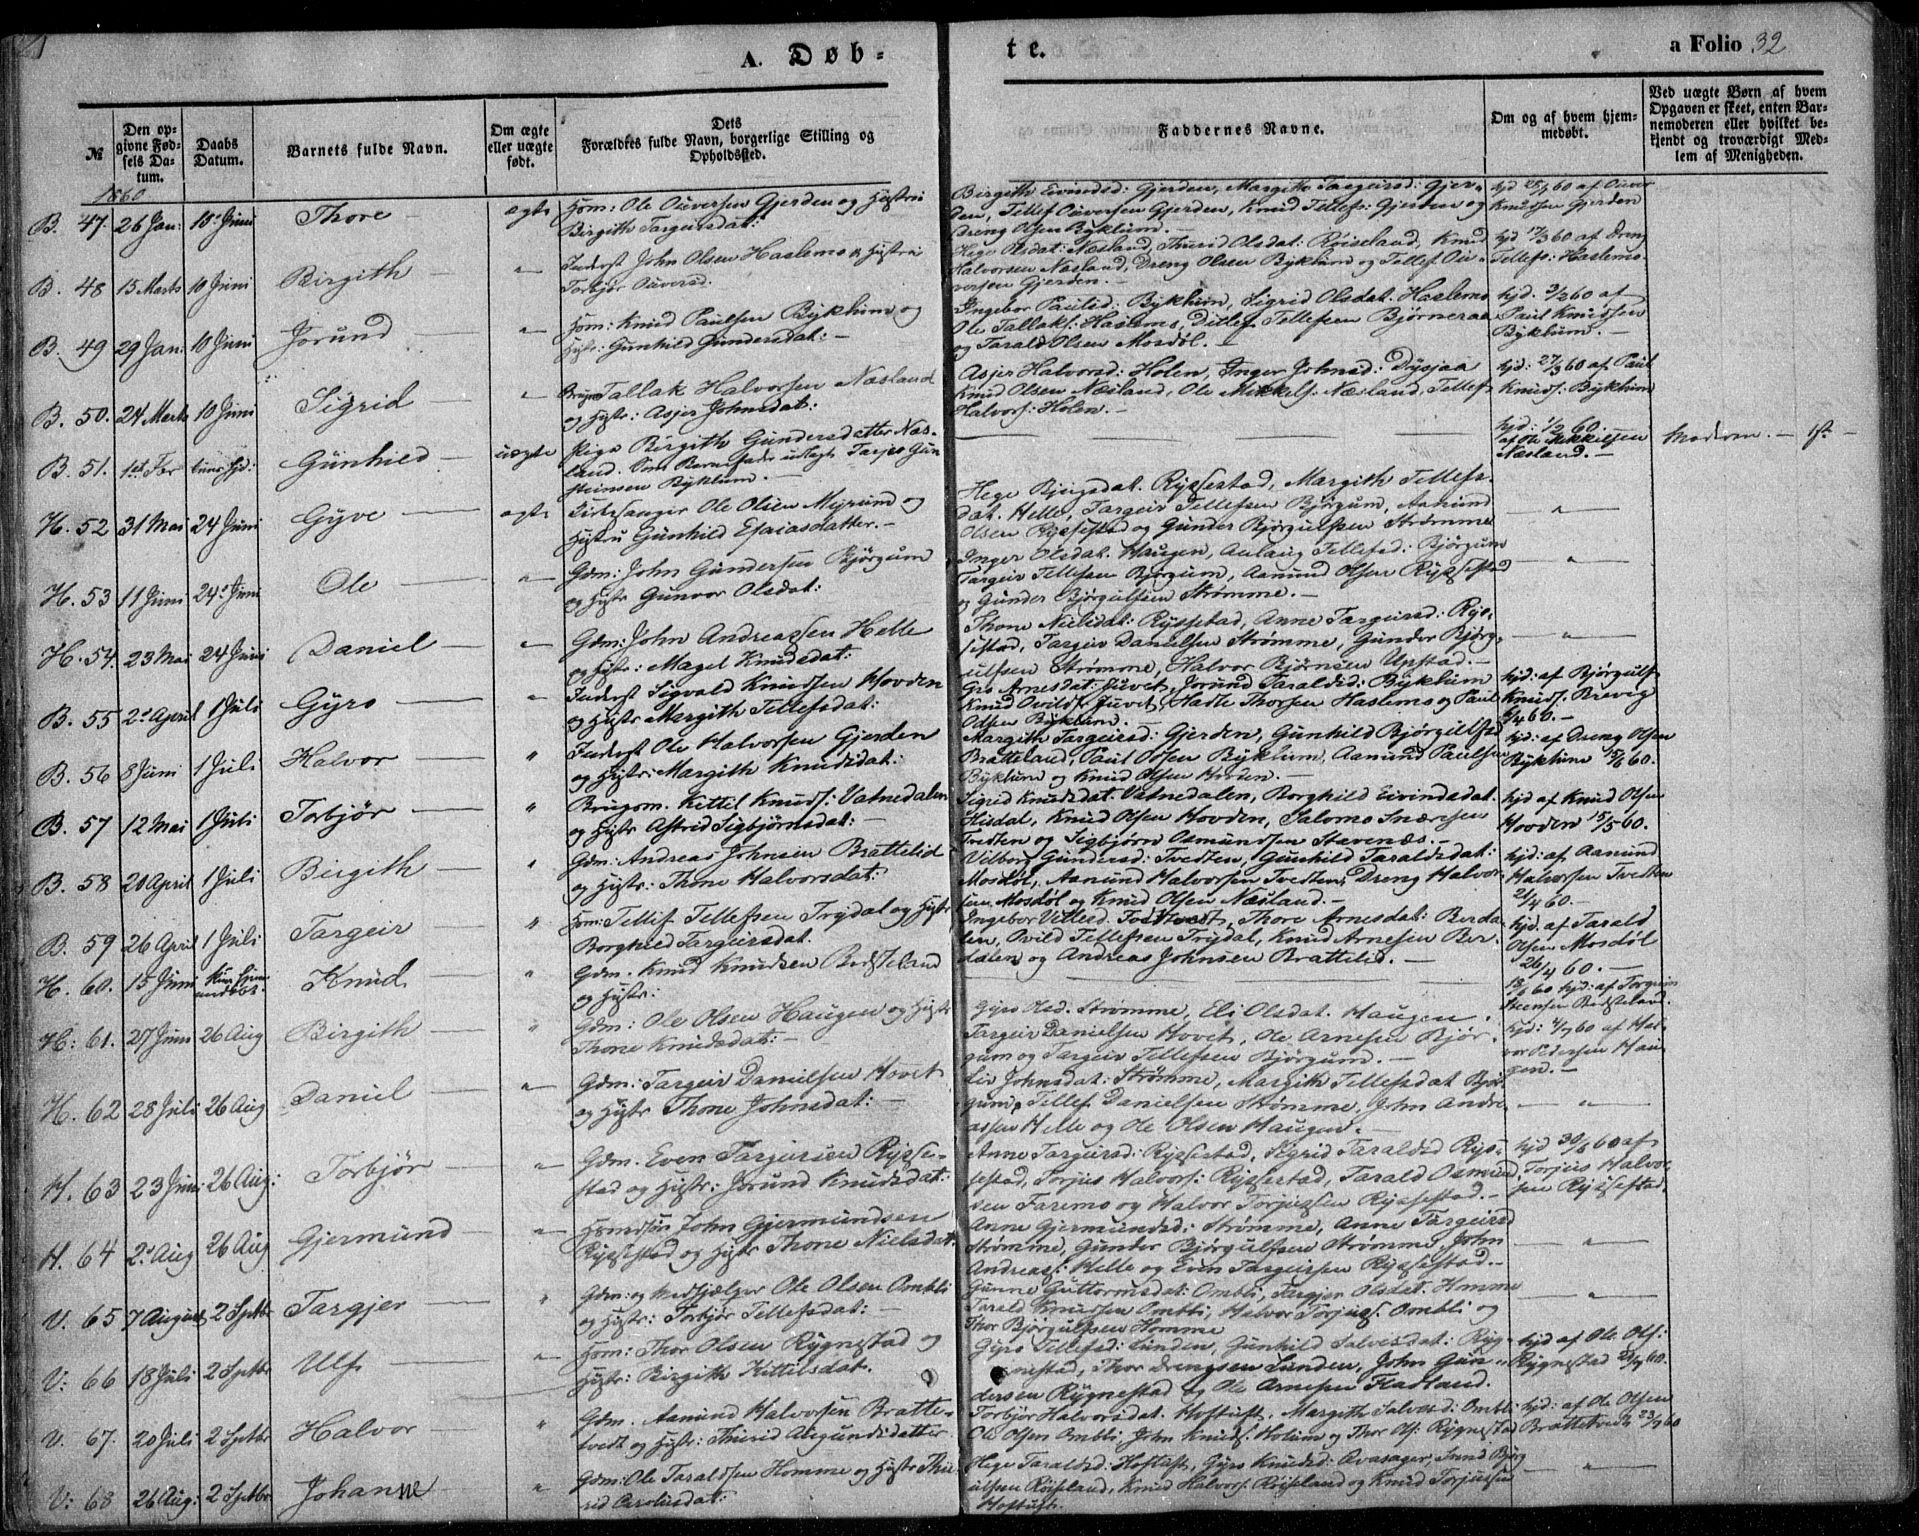 A. Døb-
te.
a Folio 32
№
Den opgivne Fødsels Datum.
Daabs Datum.
Barnets fulde Navn.
Om ægte eller uægte født.
Dets Forældres fulde Navn, borgerlige Stilling og Opholdssted.
Faddernes Navne.
Om og af hvem hjemmedøbt.
Ved uægte Børn af hvem Opgaven er skeet, enten Barnemoderen eller hvilket bekjendt og troværdigt Medlem af Menigheden.
1860
B. 47. 26 Jan: 10 Juni Thore ægte
Gdm: Ole Ouversen Gjerden og Hustru
Birgith Targeirsdat:
Birgith Eivindsd: Gjerden, Margith Targeirsd: Gjer-
den, Tellef Ouversen Gjerden, Knud Tellefs: Gjerden og
Dreng Olsen Byklum.
hjd 28/1 60 af Ouver
Knudsen Gjerden
B. 48 15 Marts 10 Juni Birgith "
Inderst John Olsen Haslemo & Hustru
Torbjør Ouversd.
Hege Olsdat: Næsland, Thurid Olsdat: Røiseland, Knud
Halvorsen Næsland, Dreng Olsen Byklum og Tellef Ou-
versen Gjerden.
hjd 17/3 60 af Dreng
Tellefs: Haslemo
B. 49 29 Jan. 10 Juni Jorund "
Gdm: Knud Paulsen Byklum og
Hustr: Gunhild Gundersdat:
Ingebor Paulsd: Byklum, Sigrid Olsdat. Haslemo
Ole Tallaks: Haslemo, Ditlef Tellefsen Bjørneraa
og Tarald Olsen Mosdøl.
hjd. 3/2 60 af
Paul Knudsen
Byklum.
B. 50. 24 Marts 10 Juni Sigrid "
Brugm Tallak Halvorsen Næsland
og Hustr: Asjer Johnsdat:
Asjer Halvorsd: Holen, Inger Johnsd: Dysjaa
Knud Olsen Næsland, Ole Mikkels: Næsland, Tellef
Halvors: Holen.
hjd: 27/3 60 af Paul
Knuds: Byklum
B. 51. 1st Feb Gunhild uægte
Pige Birgith Gundersdatter Næs-
land. Som Barnefader udlagt Tarjes Gun
steinsen Byklum.
hjd: 1/2 60.
af Ole Mikkelsen
Næsland.
Moderen. 1ste
H. 52 31 Mai 24 Juni Gyve ægte
Kirkesanger Ole Olsen Myrum og
Hustru Gunhild Esaiasdatter.
Hege Bjugsdat. Rysestad, Margith Tellefs-
dat. Helle, Targeir Tellefsen Bjørgum, Aanund
Olsen Rysestad og Gunder Bjørgulfsen Strømme
"
H. 53 11 Juni 24 Juni Ole "
Gdm: John Gundersen Bjørgum
og Hustr Gunvor Olsdat:
Inger Olsdat. Haugen, Aslaug Tellefsd: Bjørgum
Targeir Tellefsen Bjørgum, Aanund Olsen Rysestad
og Gunder Bjørgulfsen Strømme.
"
H. 54. 23 Mai 24 Juni Daniel "
Gdm: John Andreassen Helle
og Hustr: Magel Knudsdat:
Thone Nielsdat: Rysestad, Anne Targeirsd: Rys-
sestad, Targeir Danielsen Strømme, Gunder Bjørg-
ulfsen Strømme, Halvor Bjørnsen Upstad.
"
B. 55 2 April 1 Juli Gyro "
Inderst Sigvald Knudsen Hovden
og Hustr Margith Tellefsdat:
Gro Arnesdat: Juvet, Jorund Taraldsd: Byklum
Knud Ovilds: Juvet, Hadle Thorsen Haslemo og Paul
Olsen Byklum.
hjd: af Bjørgulf
Knuds: Breivig
/4 60.
B. 56 8 Juni 1 Juli Halvor "
Inderst Ole Halvorsen Gjerden
og Hustr: Margith Knudsdat:
Margith Targeirsd: Gjerden, Gunhild Bjørgulfsd
Bratteland, Paul Olsen Byklum, Aanund Paulsen
Byklum og Knud Olsen Hovden.
hjd: af Dreng Olsen
Byklum 15/6 60.
B. 57 12 Mai 1 Juli Torbjør "
Brugsm. Kittil Knuds: Vatnedalen
og Hustr Astrid Sigbjørnsdat:
Sigrid Knudsdat. Vatnedalen, Borghild Eivindsdat.
Hisdal, Knud Olsen Hovden, Salomo Snæresen
Tvedten og Sigbjørn Osmundsen Stavenæs.
hjd af Knud Olsen
Hovden 15/5 60.
B. 58 20 April 1 Juli Birgith "
Gdm: Andreas Johnsen Brattelid
og Hustr: Thone Halvorsdat:
Vilborg Gundersd: Tvedten, Gunhild Taraldsdat:
Mosdøl, Aanund Halvorsen Tvedten, Dreng Halvor-
sen Mosdøl og Knud Olsen Næsland.
hjd: af Aanund
Halvorsen Tvedten
21/4 60.
B. 59 26 April 1 Juli Targeir "
Gdm: Tellef Tellefsen Trydal og Hustr
Borghild Targeirsdat.
Thore Arnesdat: Berda-
len, Ovild Tellefsen Trydal, Knud Arnesen Ber-
dalen og Andreas Johnsen Brattelid.
hjd. af Tarald
Olsen Mosdøl
26/4 60.
H. 60. 15 Juni Kun hjem-
medøbt. Knud "
Gdm. Knud Knudsen Besteland
og Hustr:
18/6 60 hjd: af Torgrim
Steensen Besteland.
H: 61. 27 Juni 26 Aug Birgith "
Gdm: Ole Olsen Haugen og Hustr
Thone Knudsdat:
Gyro Olsd. Strømme, Eli Olsdat. Haugen.
Targeir Danielsen Hovet, Ole Arnesen Bjør-
gum og Targeir Tellefsen Bjørgum.
hjd: 4/7 60 af Hal-
vor Pedersen Hau-
gen.
H. 62 28 Juli 26 Aug Daniel "
Gdm: Targeir Danielsen Hovet
og Hustr Thone Johnsdat:
Liv Johnsdat: Strømme, Margith Tellefsdat Bjør-
gum, Tellef Danielsen Strømme, John Andre-
assen Helle og Ole Olsen Haugen.
"
H. 63 23 Juni 26 Aug: Torbjør "
Gdm. Even Targeirsen Rysse-
stad og Hustr: Jorund Knudsdat:
Anne Targeirsd: Ryssestad, Sigrid Taraldsd Rys-
sestad, Torjus Halvors: Ryssestad, Tarald Osmund
sen Faremo og Halvor Torjussen Ryssestad.
hjd 30/6 60 af
Torjus Halvor
sen Ryssestad.
H. 64 2 Aug 26 Aug Gjermund "
Huusmand John Gjermundsen
Ryssestad og Hustr Thone Nielsdat.
Anne Gjermundsd: Strømme, Anne Targeirsd
Strømme, Gunder Bjørgulfsen Strømme, John
Andreass: Helle og Even Targeirsen Ryssestad.
"
V. 65 7 August 2 Septbr Targjer "
Gdm: og Medhjælper Ole Olsen Ombli
og Hustr: Torbjør Tellefsdat:
Gunne Guttormsdat: Ombli, Targjer Olsdat. Homme
Tarald Knudsen Ombli, Halvor Torjuss. Ombli og
Thor Bjørgulfsen Homme
"
V: 66 18 Juli 2 Septbr Ulf "
Gdm: Thor Olsen Rygnestad og
Hustr: Birgith Kittelsdat.
Gyro Tellefsd: Lunden, Gunhild Salvesdat: Ryg-
nestad, Thor Drengsen Lunden, John Gun-
dersen Rygnestad og Ole Arnesen Flatland.
hjd af Ole Ols:
Rygnestad 21/7 60.
V. 67. 20 Juli 2 Septbr Halvor "
Gdm. Aamund Halvorsen Bratte-
tvedt og Hustr: Thurid Asgundsdatter
Torbjør Halvorsdat. Hoftuft, Margith Salvesd: Ombli
Ole Olsen Ombli, John Knuds. Holum og Thor Ols: Rygnestad
hjd: af Ole Olsen
Brattetvedt 23/7 60
V: 68 26 Aug: 2 Septbr Johanne "
Gdm: Ole Taraldsen Homme og Hustr Thu-
rid Carolusdat:
Hege Taraldsd: Hoftuft, Gyro Knudsd: Kvasager, Svend Bjørg
ulfsen Røisland, Knud Halvors. Røiseland og Knud Torjussen
Hoftuft.
"